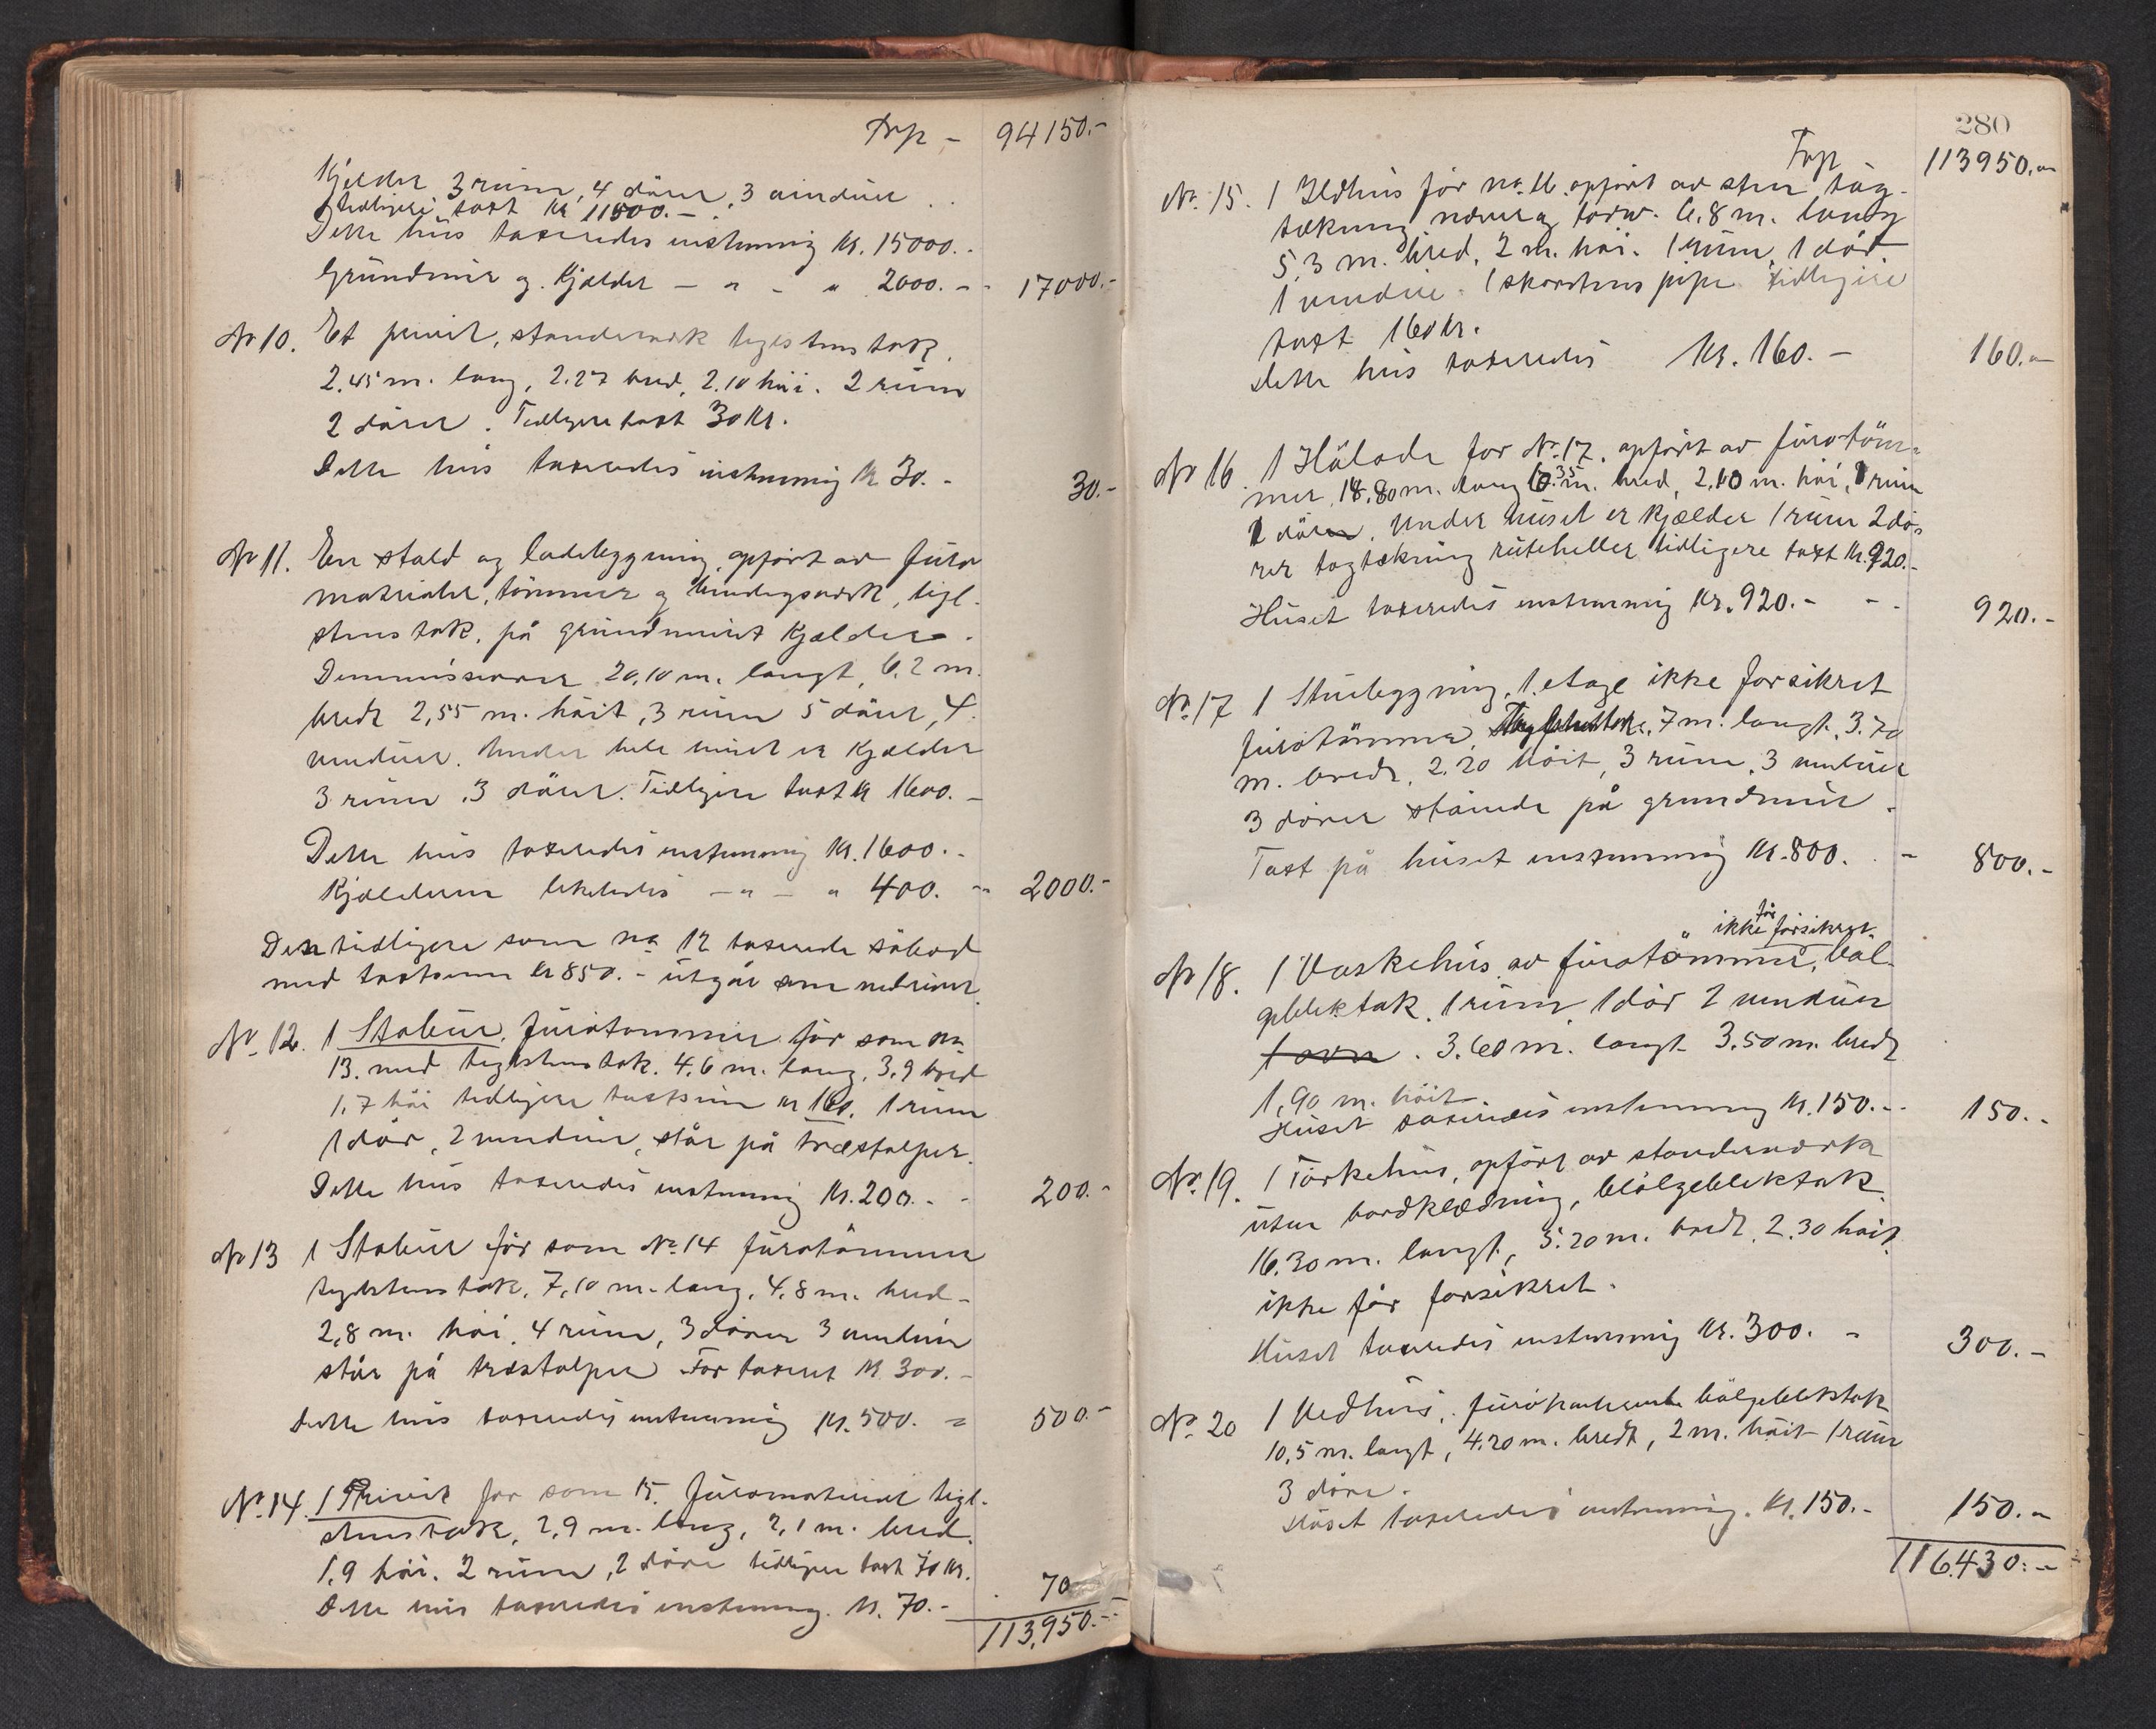 Trp - 94150.-
Kjelder 3 rum, 4 dører, 3 vinduer
tidligere taxt kr 11500.-
Dette hus taxeredes enstemmig kr. 15000.-
Grundmur og Kjælder - " - " 2000.- - 17000.-
No 10. Et privet, standerverk teglstenstak,
2.45 m. lang, 2.27 bred, 2.10 høi. 2 rum
2 dører. Tidligere taxt 30 kr.
Dette hus taxeredes enstemmig kr 30.- 30.-
No 11. En stald og ladebygning, opført av furu
materialer, tømmer og bindingsverk, tegl-
stens tak, på grundmuret Kjælder.
Dimmissioner 20,10 m. langt, 6,2 m.
bredt 2,55 m. høit, 3 rum 5 dører, 4
vinduer. Under hele huset er Kjælder
3 rum, 3 dører. Tidligere taxt kr 1600.-
Dette hus taxeredes enstemmig kr. 1600.-
Kjælderen likeledes - " - " 400. - 2000.-
Den tidligere som no 12 taxerede
med taxtsum kr 850.- utgår som nedrevet.
No 12. 1 Stabur, furutømmer før som no
13. med teglstenstak. 4,6 m. lang, 3,9 bred
1,7 høi tidligere taxtsum kr 160. 1 rum
1 dør, 2 vinduer, står på træstolper.
Dette hus taxeredes enstemmig kr. 200.- - 200.-
No 13 1 Stabur før som No 14 furutømmer
teglstens tak, 7,10 m. lang, 4,8 m. bred -
2,8 m. høi, 4 rum, 3 dører 3 vinduer
står på træstolper Før taxeret kr 300.-
Dette hus taxeredes enstemmig kr. 500. = 500.-
No. 14. 1 Privet før som 15. furumaterial tegl-
stenstak, 2,9 m. lang, 2,1 m. bred.
1,9 høi. 2 rum, 2 døre tidligere taxt 70 kr.
Dette hus taxeredes enstemmig. kr. 70.- 70
113,950.-
280
Trp 113950.-
No. 15. 1 Ildhus før no. 16 opført av sten, tag-
tækning næver og torv. 6,8 m. lang
5,3 m. bred, 2 m. høi. 1 rum, 1 dør.
1 vindue. 1 skorstens pipe tidligere
taxt 160 kr.
Dette hus taxeredes kr. 160.- 160.-
No 16. 1 Hølade før No. 17. opført av furutøm-
mer, 18,80 m. lang 6.35 m. bred, 2,10 m. høi, 1 rum
1 dør. Under huset er kjælder 1 rum 2 dø-
rer tagtækning ruteheller tidligere taxt kr. 920.-
Huset taxeredes enstemmig kr. 920.- - - 920.-
No. 17 1 Stuebygning, 1. etage ikke forsikret
furutømmer, 7 m. langt, 3.70
m. bredt, 2.20 høit, 3 rum, 3 vinduer
3 dører stående på grundmur.
Taxt på huset enstemmig kr. 800. - 800.-
ikke før forsikret.
No 18. 1 Vaskehus av furutømmer, bøl-
gebliktak, 1 rum, 1 dør 2 vinduer
1 ovn. 3.60 m. langt 3.50 m. bredt
1,90 m. høit
Huset taxeredes enstemmig kr. 150.- - 150.-
No. 19. 1 Tørkehus, opført av standerverk
uten bordklædning, bølgebliktak
16.30 m. langt, 5.20 m. bredt, 2.30 høit.
ikke før forsikret.
Huset taxeredes enstemmig kr. 300. - 300.-
No. 20 1 Vedhus, bølgebliktak
10,5 m. langt, 4.20 m. bredt, 2 m. høit 1 rum
3 døre.
Huset taxeredes enstemmig. kr. 150.- 150.-
116.430.-